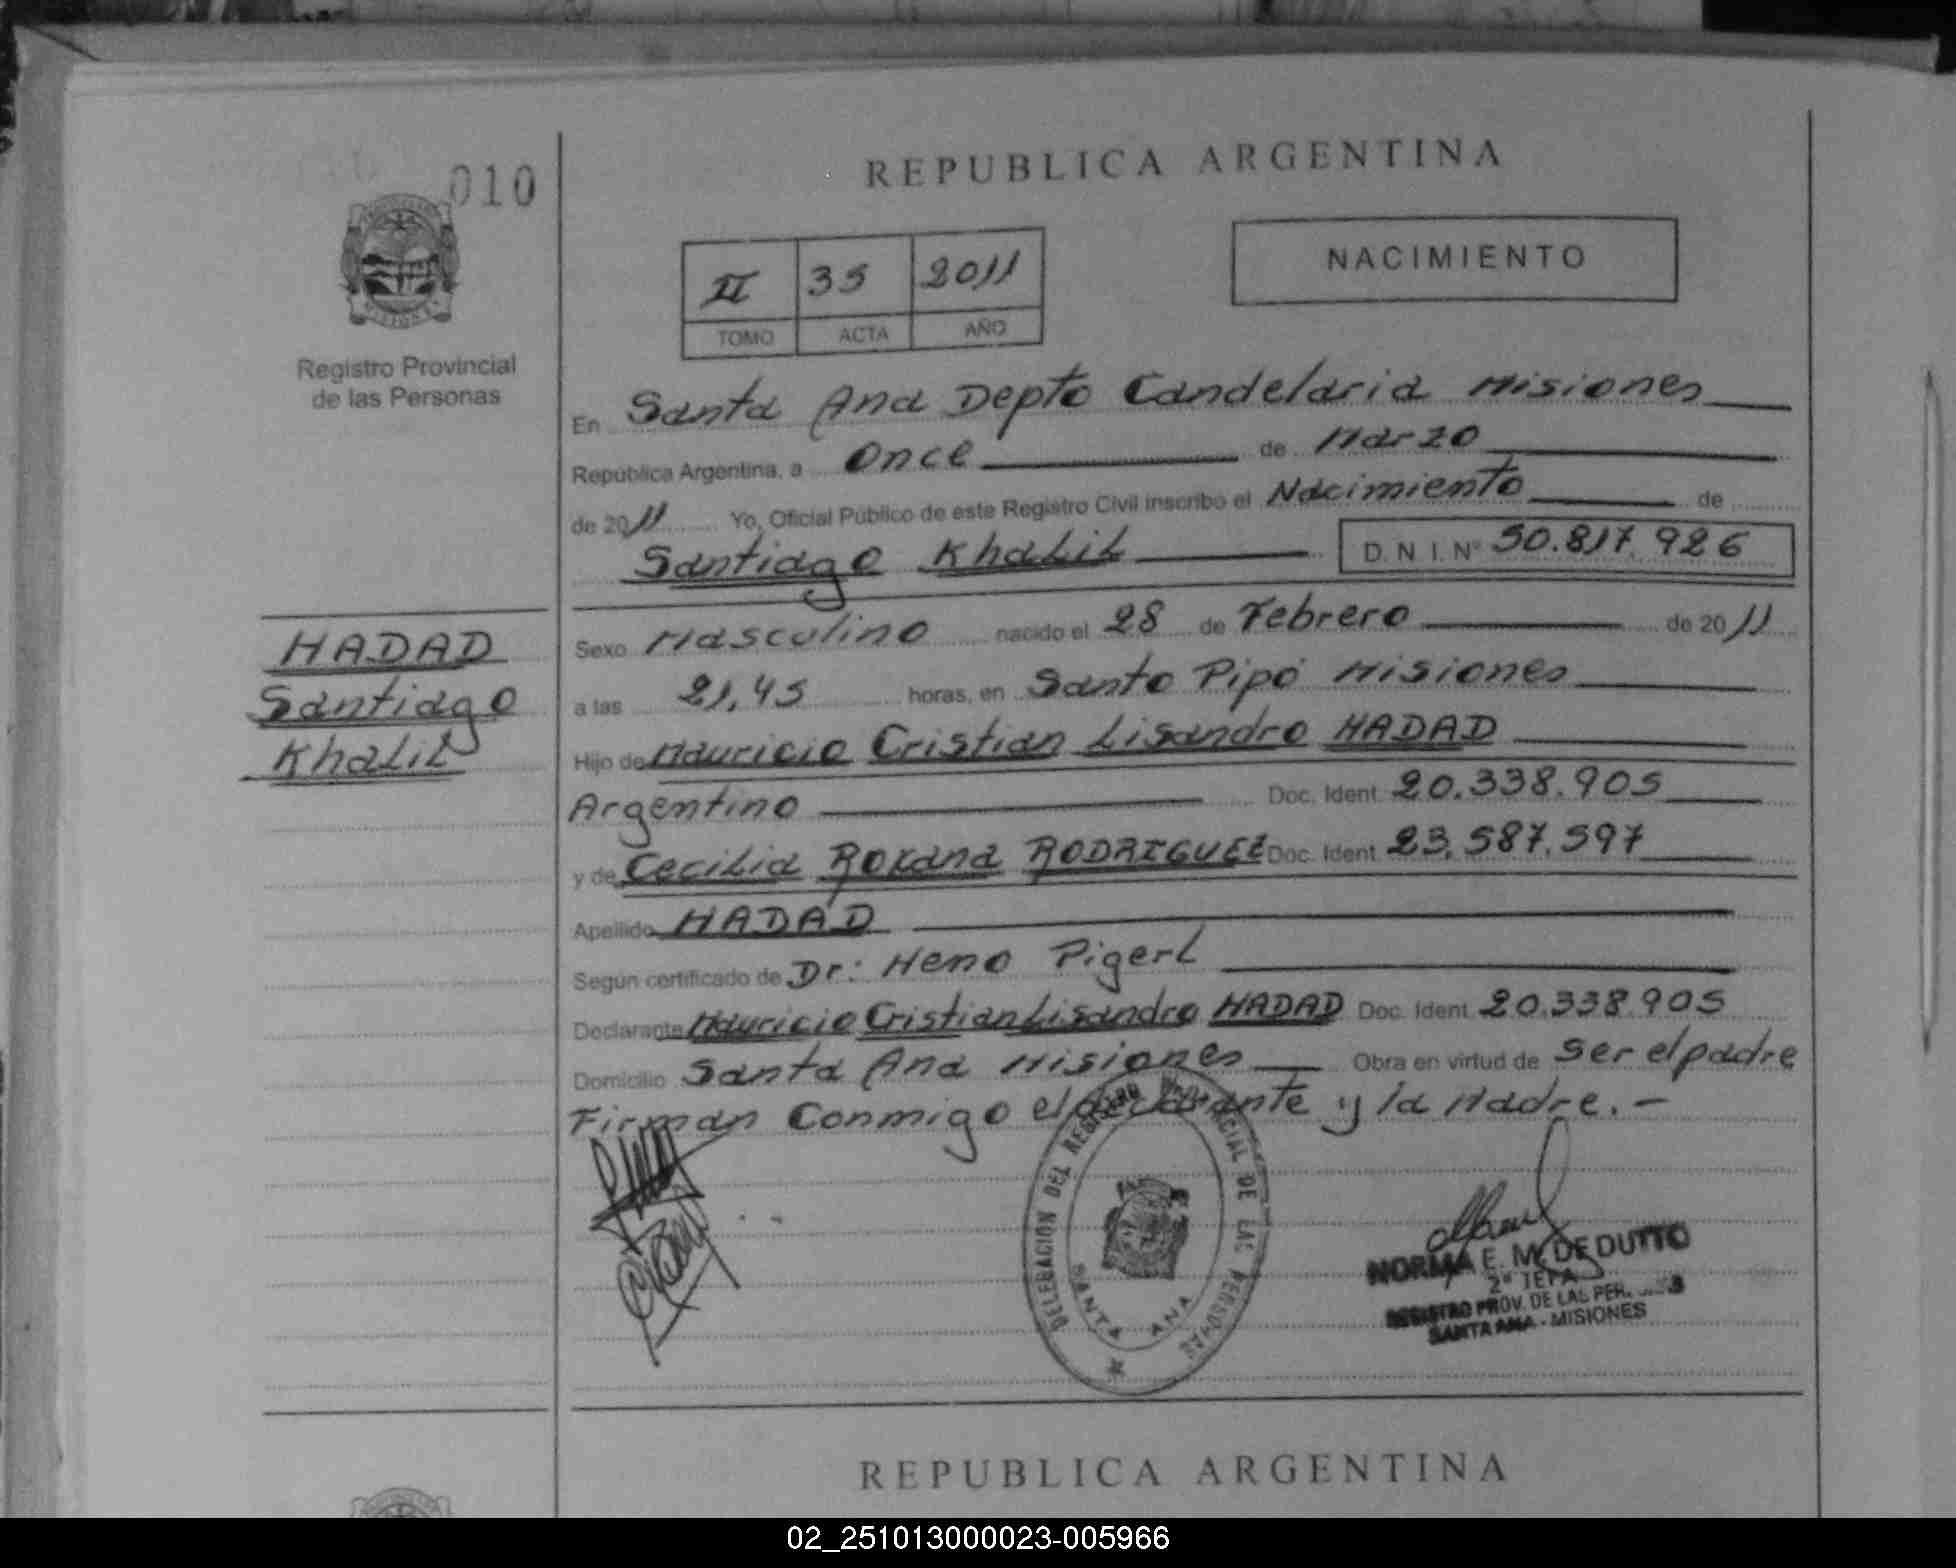 010
REPUBLICA ARGENTINA
NACIMIENTO
II 35 2011
TOMO ACTA AÑO
Registro Provincial
de las Personas
En Santa Ana Depto Candelaria Misiones
República Argentina, a Once de Marzo
de 2011 Yo, Oficial Público de este Registro Civil inscribo el Nacimiento de
Santiago Khalil D.N.I. Nº 50.817.926
HADAD
Santiago
Khalil
Sexo Masculino nacido el 28 de Febrero de 2011
a las 21,45 horas, en Santo Pipó Misiones
Hijo de Mauricio Cristian Lisandro HADAD
Argentino Doc. Ident. 20.338.905
y de Cecilia Roxana RODRIGUEZ Doc. Ident. 23.587.597
Apellido HADAD
Según certificado de Dr: Heno Pigerl
Declarante Mauricio Cristian Lisandro HADAD Doc. Ident. 20.338.905
Domicilio Santa Ana Misiones Obra en virtud de Ser el padre
Firman Conmigo el declarante y la Madre.-
DELEGACION DEL REGISTRO PROVINCIAL DE LAS PERSONAS
SANTA ANA
NORMA E. M. DE DUTTO
REGISTRO PROV. DE LAS
SANTA ANA - MISIONES
REPUBLICA ARGENTINA
02_251013000023-005966